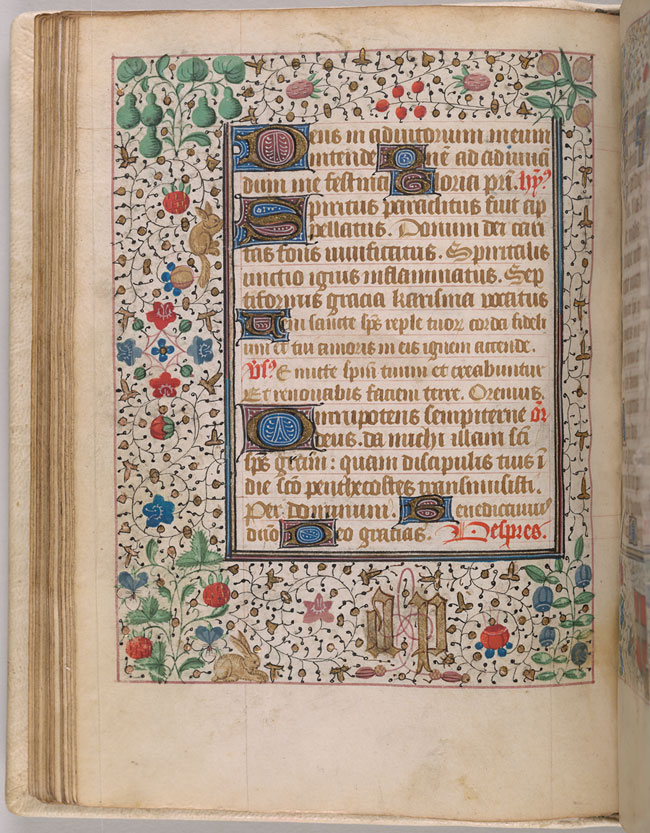 Deus in adiutorium meum
intende Domine ad adiuua
dum me festina Gloria pri. hy.
Spiritus paraclitus fuit ap
pellatus. Donum dei cari
tas fons uiuificatus. Spiritalis
unctio ignis inflammatus. Sep
tiformis gracia karisma vocatus
Ueni sancte sps reple tuor corda fideli
um et tui amoris in eis ignem accende.
Vs. Emitte spm tuum et creabuntur
Et renouabis faciem terre. Oremus.
Omnipotens sempiterne or
deus. da michi illam sci
sps gram: quam discipulis tuis i
die sco penthecostes transmisisti.
Per dominum. Benedicamus
dno Deo gratias. Vespres.